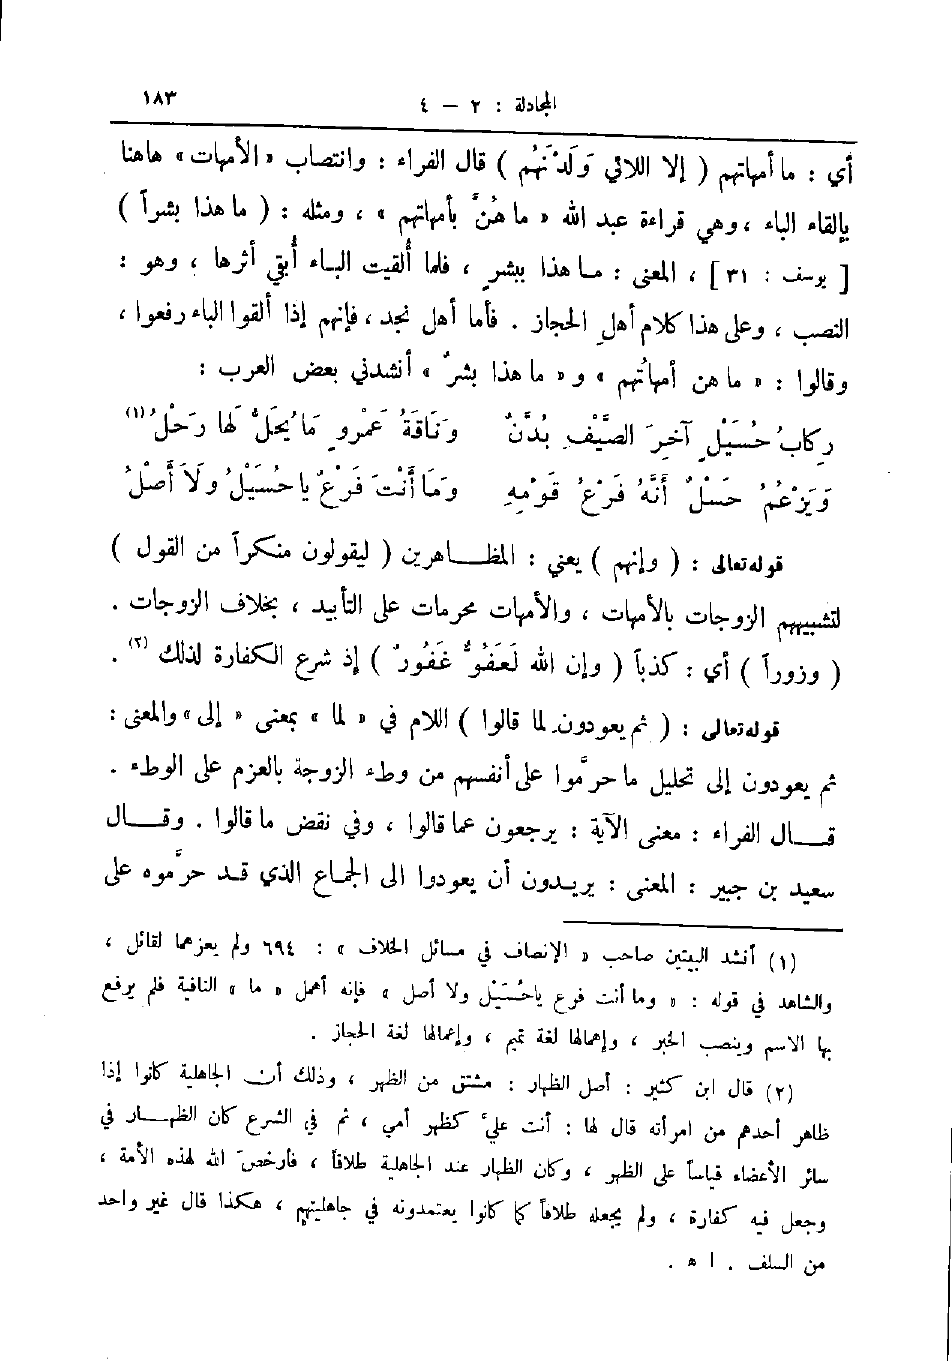 المجادلة : ٢ — ٤ ١٨٣
أي : ما أمهاتهم ( إلا اللائي وَلَدْنَهُم ) قال الفراء : وانتصاب « الأمهات » هاهنا
بإلقاء الباء ، وهي قراءة عبد الله « ما هُنَّ بأمهاتهم » ، ومثله : ( ما هذا بشراً )
[ يوسف : ٣١ ] ، المعنى : ما هذا ببشرٍ ، فلما أُلقيت الباء أُبقي أثرها ، وهو :
النصب ، وعلى هذا كلام أهلِ الحجاز . فأما أهل نجد ، فإنهم إذا ألقوا الباء رفعوا ،
وقالوا : « ما هن أمهاتُهم » و « ما هذا بشرٌ » أنشدني بعض العرب :
رِكابُ حُسَيْلٍ آخِرَ الصَّيْفِ بُدَّنٌ وَنَاقَةُ عَمْرٍو مَا يُحَلُّ لَها رَحْلُ (١)
وَيَزْعُمُ حَسْلٌ أَنَّهُ فَرْعُ قَوْمِهِ وَمَا أَنْتَ فَرْعٌ يا حُسَيْلُ ولَا أَصْلُ
قوله تعالى : ( وإنهم ) يعني : المظاهرين ( ليقولون منكراً من القول )
لتشبيههم الزوجات بالأمهات ، والأمهات محرمات على التأبيد ، بخلاف الزوجات .
( وزوراً ) أي : كذباً ( وإن الله لَعَفُوٌّ غَفُورٌ ) إذ شرع الكفارة لذلك (٢) .
قوله تعالى : ( ثم يعودون لما قالوا ) اللام في « لما » بمعنى « إلى » والمعنى :
ثم يعودون إلى تحليل ما حرَّموا على أنفسهم من وطء الزوجة بالعزم على الوطء .
قال الفراء : معنى الآية : يرجعون عما قالوا ، وفي نقض ما قالوا . وقال
سعيد بن جبير : المعنى : يريدون أن يعودوا الى الجماع الذي قد حرَّموه على
(١) أنشد البيتين صاحب « الإنصاف في مسائل الخلاف » : ٦٩٤ ولم يعزهما لقائل ،
والشاهد في قوله : « وما أنت فرع ياحُسَيْل ولا أصل » فإنه أهمل « ما » النافية فلم يرفع
بها الاسم وينصب الخبر ، وإهمالها لغة تميم ، وإعمالها لغة الحجاز .
(٢) قال ابن كثير : أصل الظهار : مشتق من الظهر ، وذلك أن الجاهلية كانوا إذا
ظاهر أحدهم من امرأته قال لها : أنت عليَّ كظهر أمي ، ثم في الشرع كان الظهار في
سائر الأعضاء قياساً على الظهر ، وكان الظهار عند الجاهلية طلاقاً ، فأرخصَ الله لهذه الأمة ،
وجعل فيه كفارة ، ولم يجعله طلاقاً كما كانوا يعتمدونه في جاهليتهم ، هكذا قال غير واحد
من السلف . ا ﻫ .